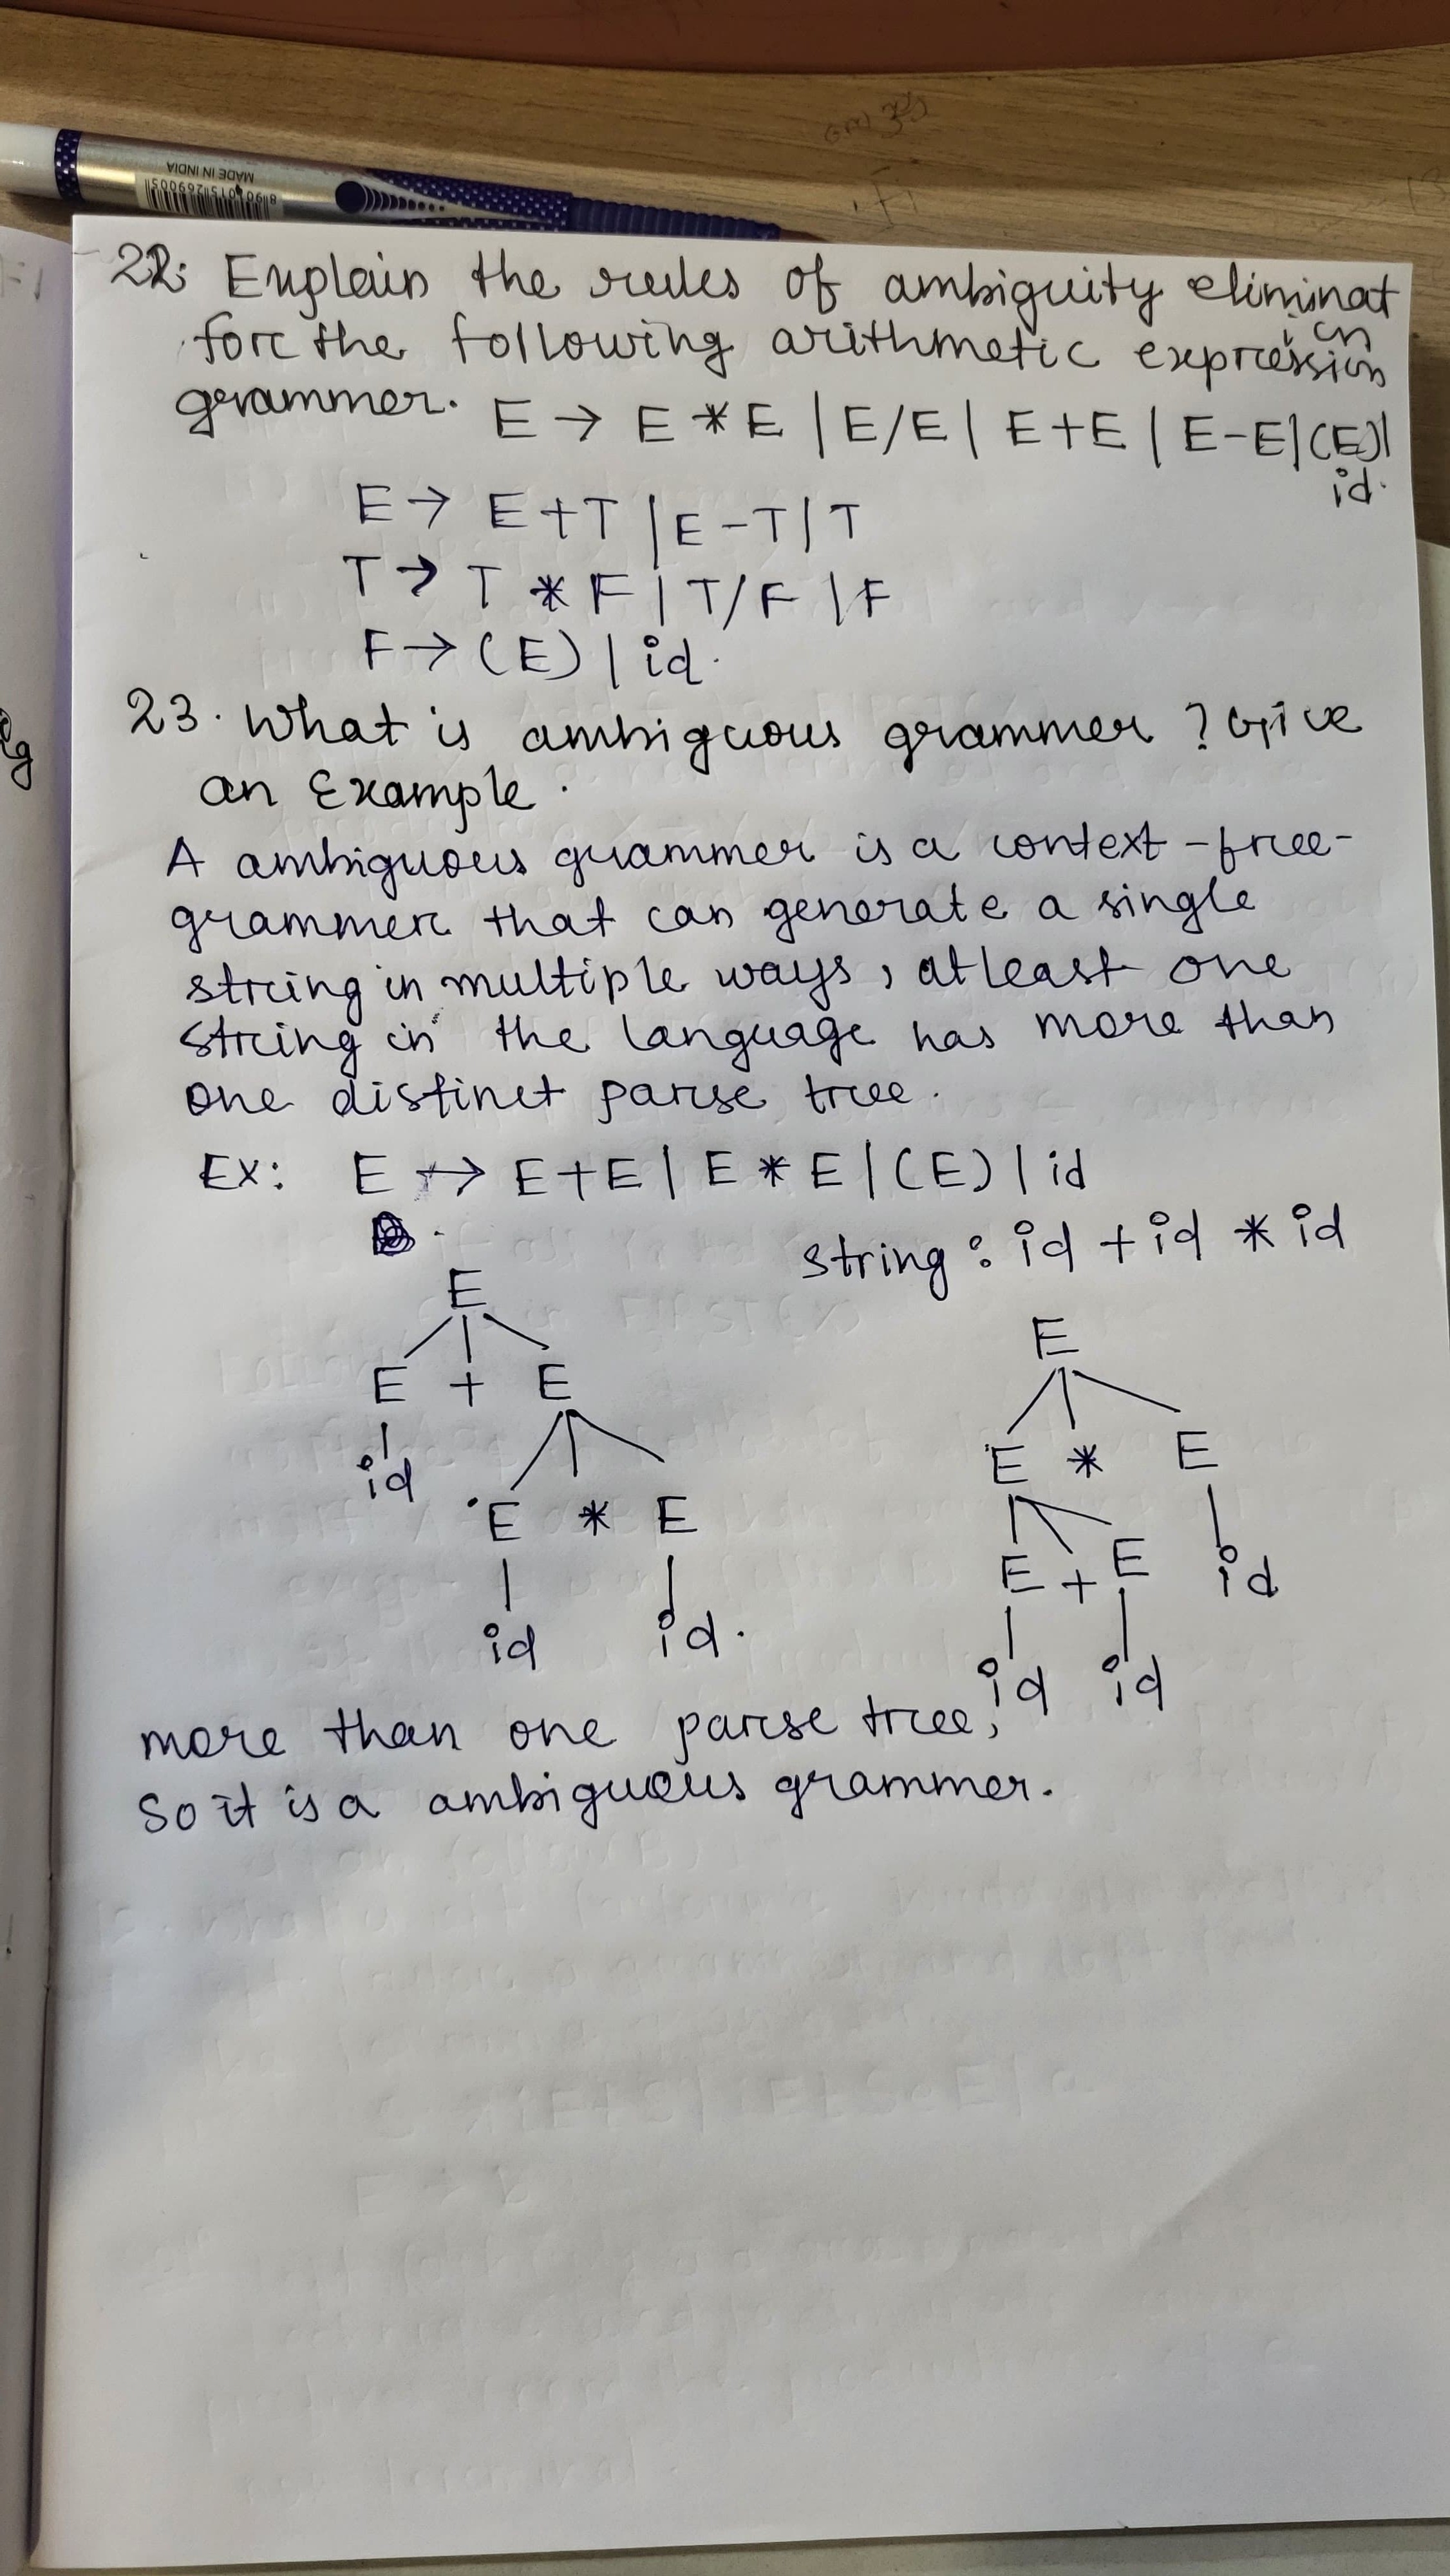 MADE IN INDIA
22. Explain the rules of ambiguity eliminat
ion
for the following arithmetic expression
grammer. E → E * E | E/E | E+E | E-E | (E) |
id.
E → E+T | E-T | T
T → T * F | T/F | F
F → (E) | id.
23. What is ambiguous grammer ? Give
an Example.
A ambiguous grammer is a context-free-
grammer that can generate a single
string in multiple ways, atleast one
string in the language has more than
one distinct parse tree.
EX: E → E+E | E * E | (E) | id
string : id + id * id
E
E + E
id
E * E
id id.
E
E * E
E + E id
id id
more than one parse tree,
So it is a ambiguous grammer.